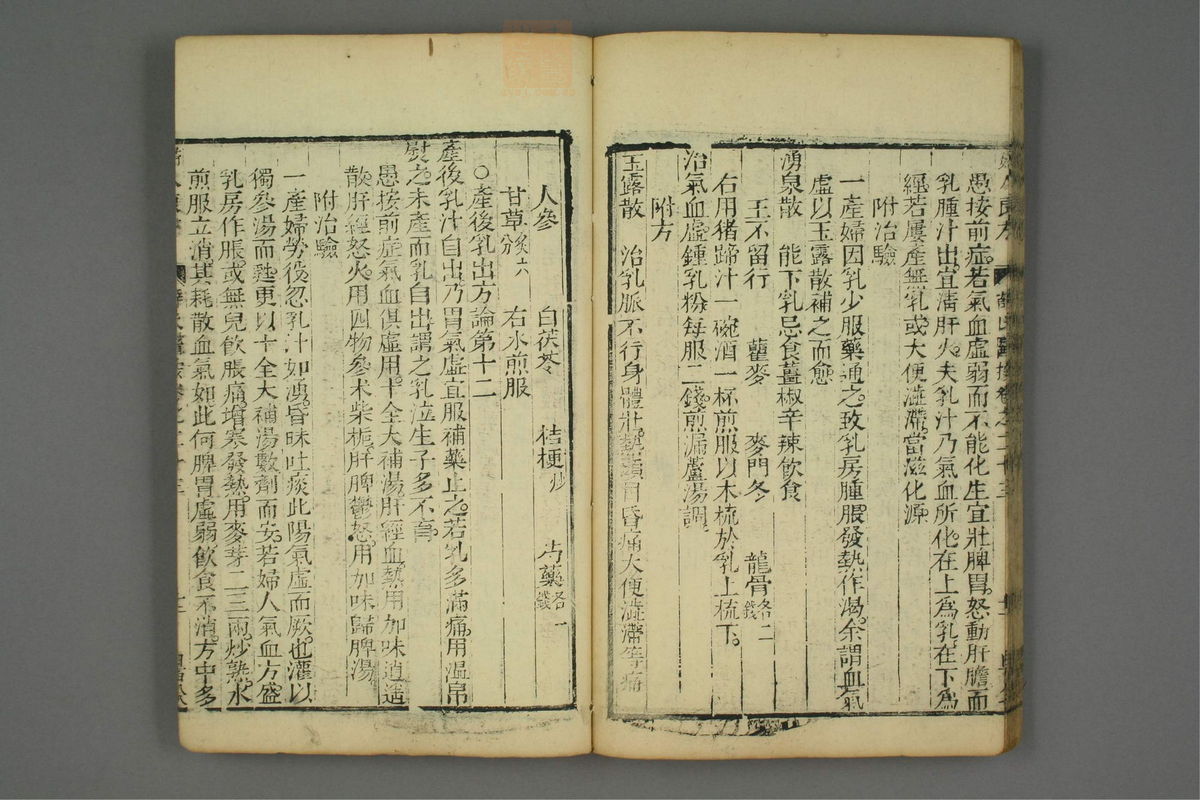 愚按前症若氣血虛弱而不能化生宜壯脾胃怒動肝膽而
乳腫汁出宜清肝火夫乳汁乃氣血所化在上爲乳在下爲
經若屢產無乳或大便澁滯當滋化源
附治驗
一產婦因乳少服藥通之致乳房腫脹發熱作渴余謂血氣
虛以玉露散補之而愈
湧泉散 能下乳忌食薑椒辛辣飲食
王不留行 瞿麥 麥門冬 龍骨各二錢
右用猪蹄汁一碗酒一杯煎服以木梳於乳上梳下
治氣血虛鍾乳粉每服二錢煎漏蘆湯調
附方
玉露散 治乳脈不行身體壯熱頭目昏痛大便澁滯等病
人參 白茯苓 桔梗炒 芍藥各一錢
甘草炙六分 右水煎服
○產後乳出方論第十二
產後乳汁自出乃胃氣虛宜服補藥止之若乳多滿痛用溫帛
熨之未產而乳自出謂之乳泣生子多不育
愚按前症氣血俱虛用十全大補湯肝經血熱用加味逍遥
散肝經怒火用四物參术柴梔肝脾鬱怒用加味歸脾湯
附治驗
一產婦勞役忽乳汁如湧昏昧吐痰此陽氣虛而厥也灌以
獨參湯而甦更以十全大補湯數劑而安若婦人氣血方盛
乳房作脹或無兒飲脹痛增寒發熱用麥芽二三兩炒熟水
煎服立消其耗散血氣如此何脾胃虛弱飲食不消方中多